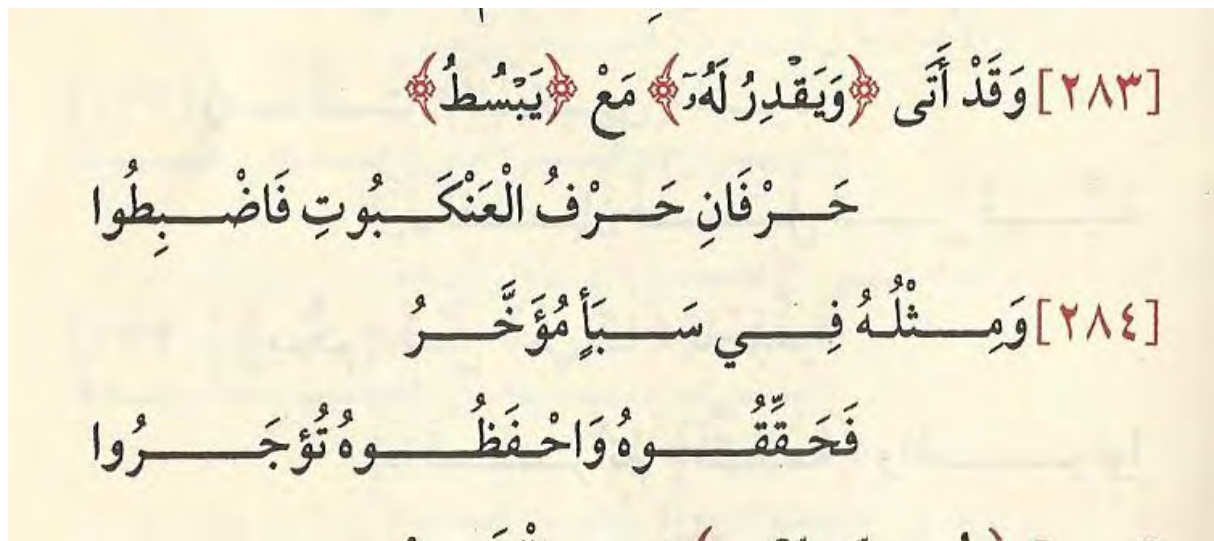 [٢٨٣] وَقَدْ أَتَى ﴿وَيَقْدِرُ لَهُۥٓ﴾ مَعْ ﴿يَبْسُطُ﴾
حَرْفَانِ حَرْفُ الْعَنْكَبُوتِ فَاضْبِطُوا
[٢٨٤] وَمِثْلُهُ فِي سَبَأٍ مُؤَخَّرُ
فَحَقِّقُوهُ وَاحْفَظُوهُ تُؤجَرُوا